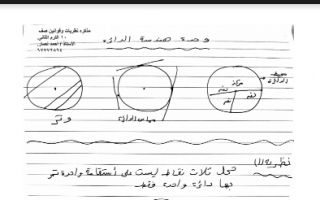 مذكرة نظريات وقوانين صف
١٠ الترم الثاني
الاستاذ / احمد نصار
وحدة هندسة الدائرة
محيط
الدائرة
مركز
قطر
نق
مماس الدائرة
وتر
نظرية (١)
كل ثلاث نقاط ليست على استقامة واحدة تمر
بها دائرة واحدة فقط